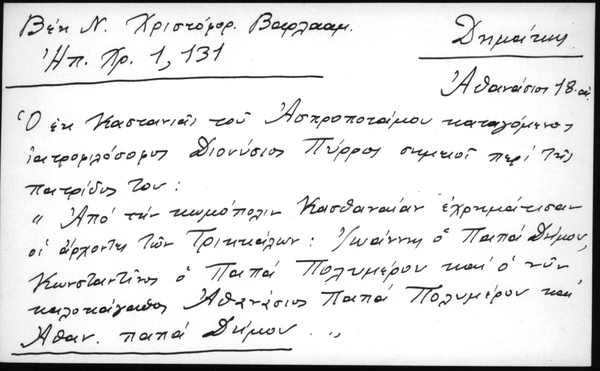 Βέη Ν. Χριστόφορ. Βαρλαάμ.
Ἠπ. Χρ. 1, 131
Δημάκης
Ἀθανάσιος 18 αἰ.
Ὁ ἐκ Καστανιᾶς τοῦ Ἀσπροποτάμου καταγόμενος
ἰατροφιλόσοφος Διονύσιος Πύρρος σημειοῖ περί τῆς
πατρίδος του:
" Ἀπό τήν κωμόπολιν Κασθαναίαν ἐχρημάτισαν
οἱ ἄρχοντες τῶν Τρικκάλων: Ἰωάννης ὁ Παπά Δήμου,
Κωνσταντῖνος ὁ Παπά Πολυμέρου καί ὁ νῦν
καλοκάγαθος Ἀθανάσιος Παπά Πολυμέρου καί
Ἀθαν. παπά Δήμου . „